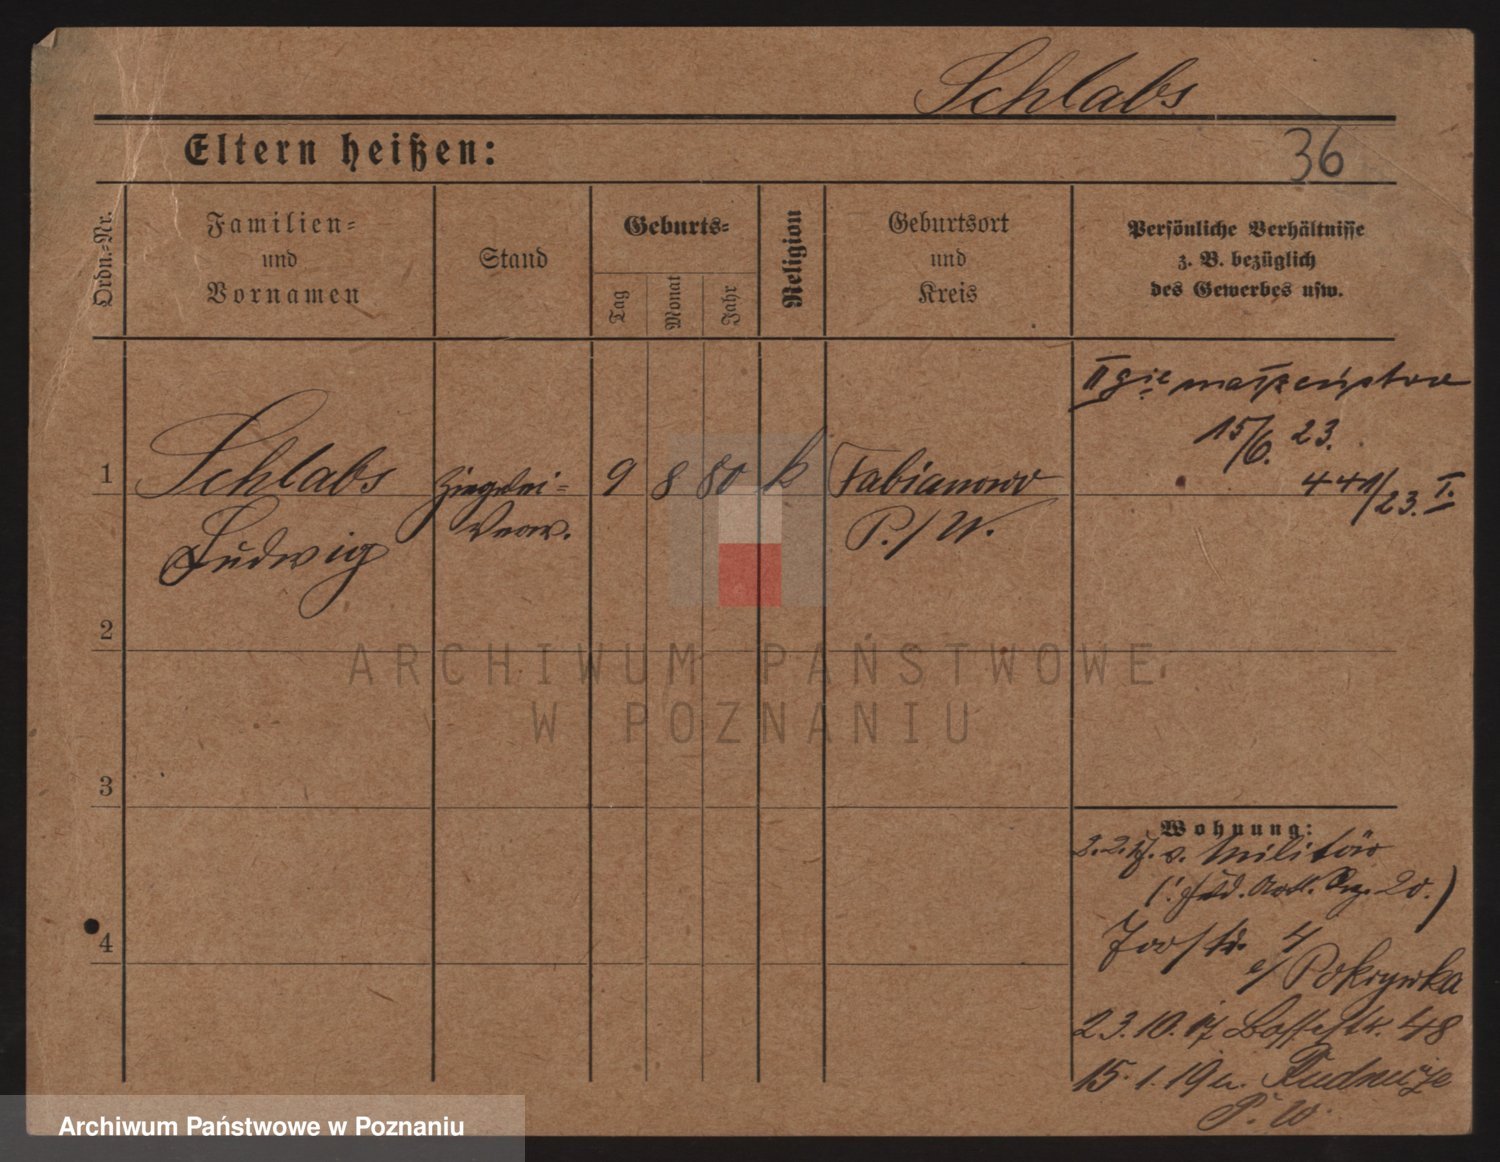 Schlabs
Eltern heißen:
36
Ordn.-Nr.
Familien-
und
Vornamen
Stand
Geburts-
Tag
Monat
Jahr
Religion
Geburtsort
und
Kreis
Persönliche Verhältnisse
z. B. bezüglich
des Gewerbes usw.
1
Schlabs
Ludwig
Ziegelei-
Verw.
9
8
80
k
Fabianowo
P./W.
II
15/6. 23.
441/23. I.
2
3
4
Wohnung:
2.2.17. v. Militär
20.)
4
Pokrywka
23.10.17 48
15.1.19 n. Rudnicze
P. W.
ARCHIWUM PAŃSTWOWE
W POZNANIU
Archiwum Państwowe w Poznaniu